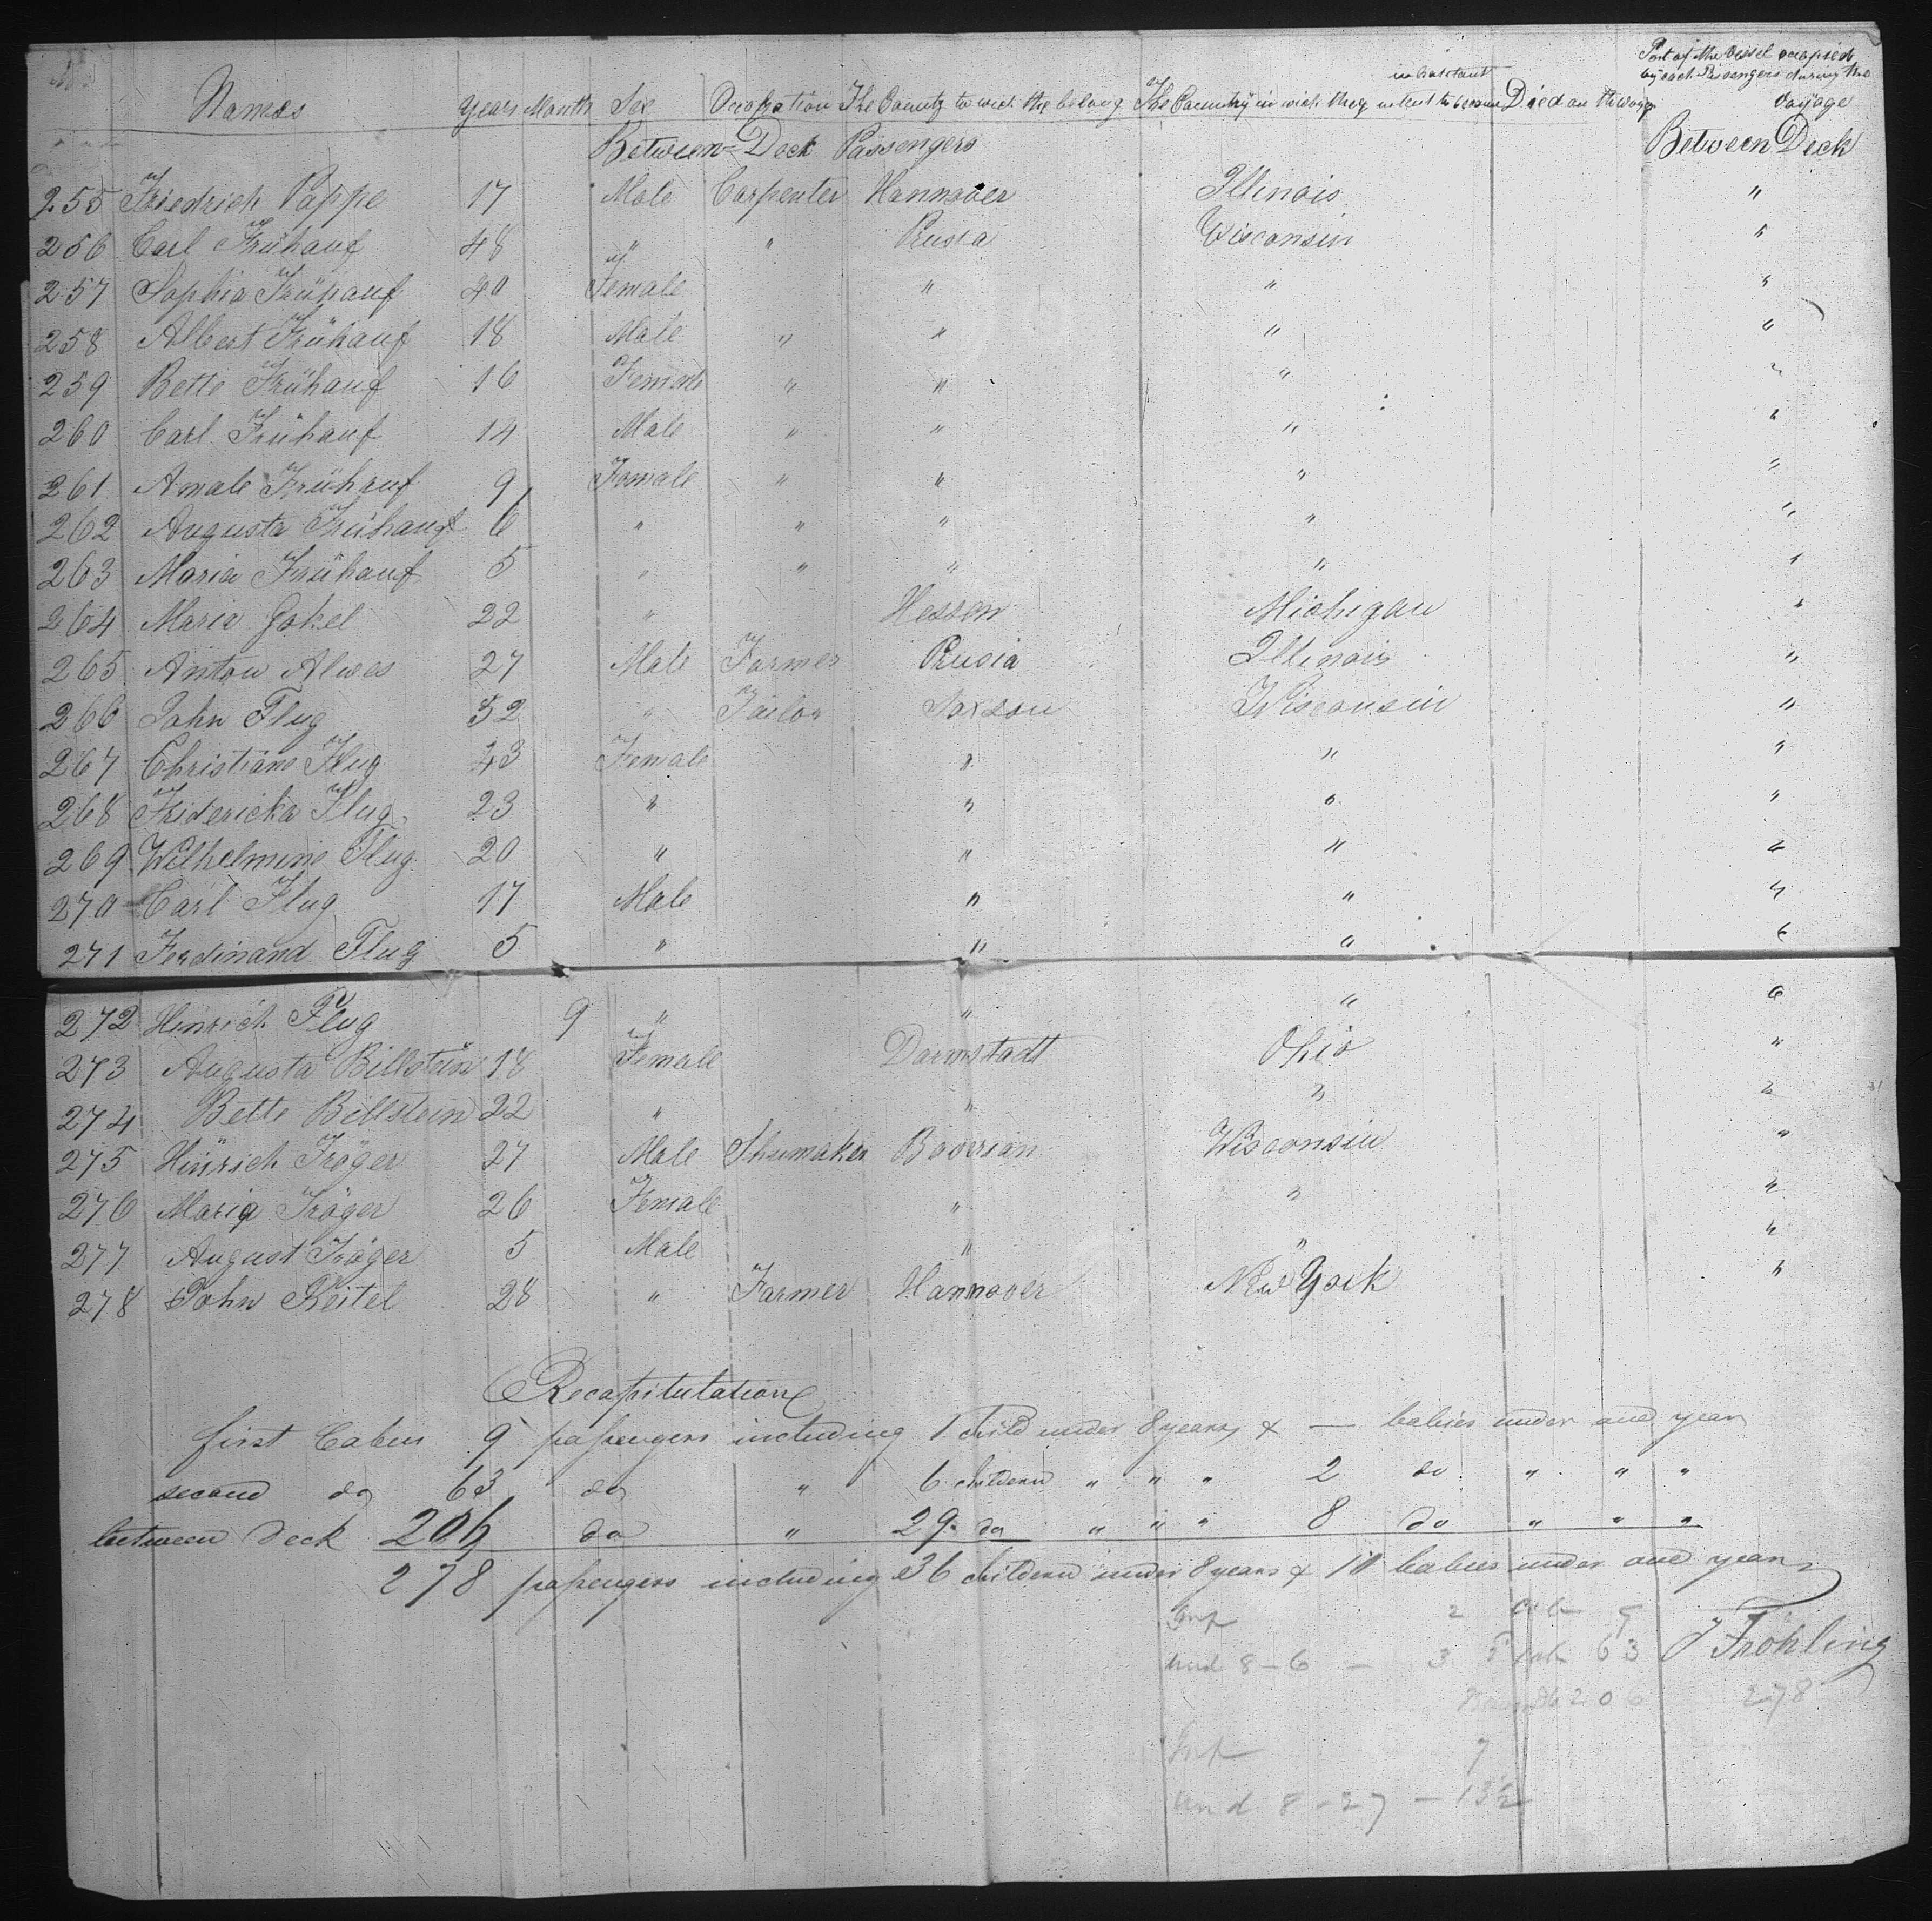 Part of the Vessel occupied
inhabitant by each Passengers during the
Names Years Month Sex Occupation The Country to wich the belong The Country in wich they intent to become Died on the voyage Voyage
Between-Deck Passengers Between Deck
255 Friedrich Pappe 17 Male Carpenter Hannover Illinois "
256 Carl Frühauf 48 " " Prusia Wisconsin "
257 Sophia Frühauf 40 Female " " "
258 Albert Frühauf 18 Male " " " "
259 Bette Frühauf 16 Female " " " "
260 Carl Frühauf 14 Male " " " "
261 Amale Frühauf 9 Female " " " "
262 Augusta Frühauf 6 " " " " "
263 Maria Frühauf 5 " " " " "
264 Maria Gokel 22 " Hessen Michigan "
265 Anton Alwes 27 Male Farmer Prusia Illinois "
266 John Flug 52 " Tailor Saxson Wisconsin "
267 Christiane Flug 43 Female " " "
268 Fridericka Flug 23 " " " "
269 Wilhelmine Flug 20 " " " "
270 Carl Flug 17 Male " " "
271 Ferdinand Flug 5 " " " "
272 Hinrich Flug 9 " " " "
273 Augusta Billstein 18 Female Darmstadt Ohio "
274 Bette Billstein 22 " " " "
275 Hinrich Tröger 27 Male Shumaker Baverian Wisconsin "
276 Maria Tröger 26 Female " " "
277 August Tröger 5 Male " " "
278 John Keitel 28 " Farmer Hannover New York "
Recapitulation
first Cabin 9 passengers including 1 child under 8 years & — babies under one year
second do 63 do " 6 children " " " 2 do " " "
between deck 206 do " 29 do " " " 8 do " " "
278 passengers including 36 children under 8 years & 10 babies under one year
Inf 2 Cab 9
und 8 - 6 - 3 2 Cab 63 J Fröhling
206 278
Inf 7
und 8 - 27 - 13½